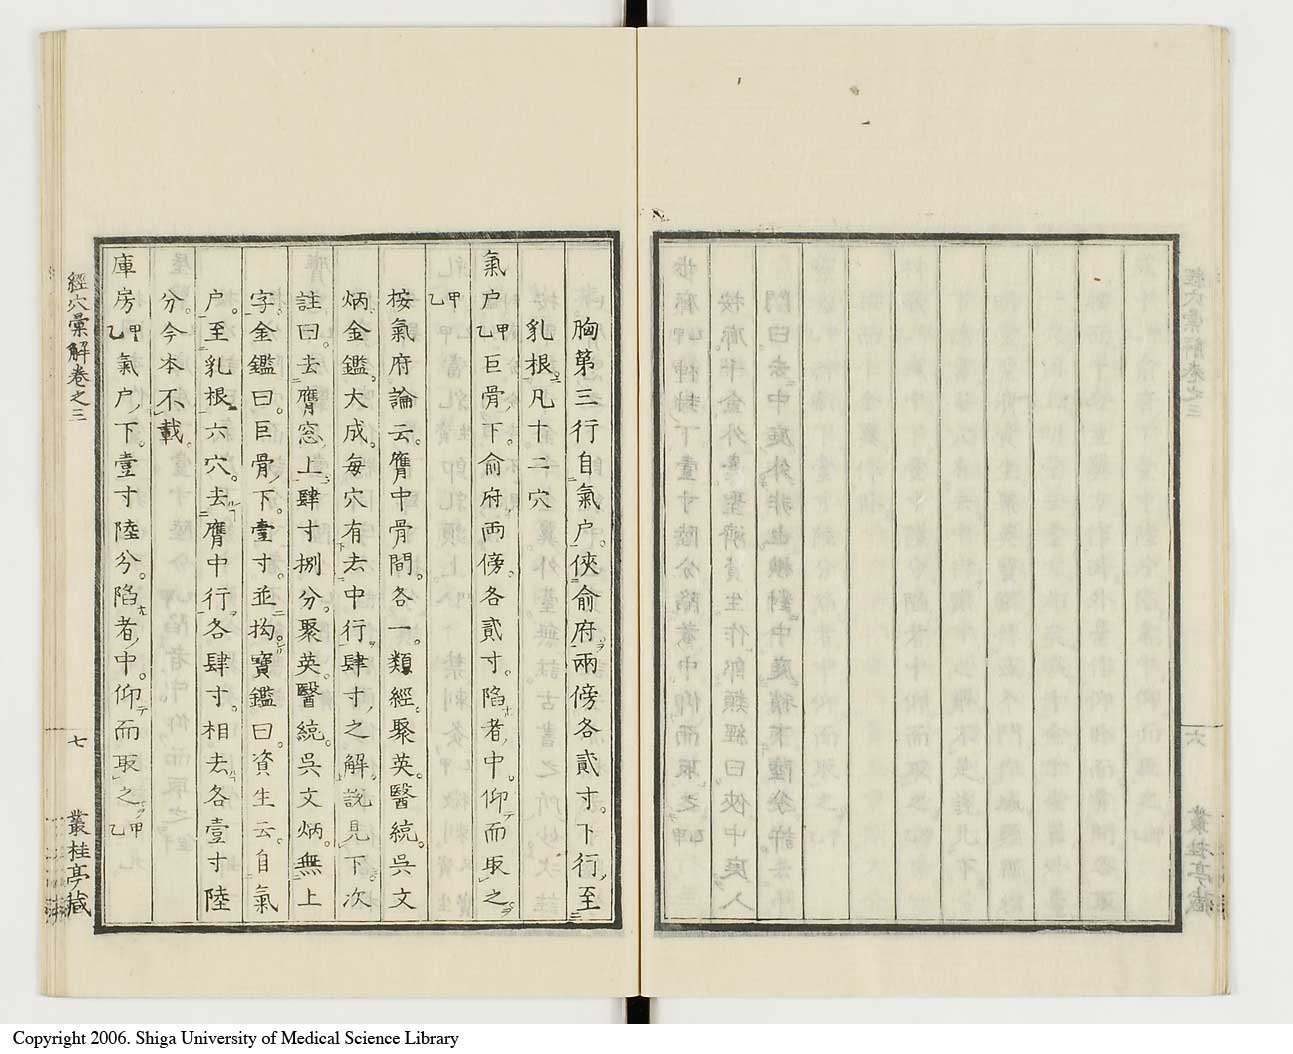 胸第三行自氣户俠俞府兩傍各貳寸下行至
乳根凡十二穴
氣户甲乙巨骨下俞府兩傍各貳寸陷者中仰而取之
甲乙
按氣府論云膺中骨間各一類經聚英醫統吳文
炳金鑑大成每穴有去中行肆寸之解說見下次
註曰去膺窓上肆寸捌分聚英醫統吳文炳無上
字金鑑曰巨骨下壹寸並拘寶鑑曰資生云自氣
户至乳根六穴去膺中行各肆寸相去各壹寸陸
分今本不載
庫房甲乙氣户下壹寸陸分陷者中仰而取之甲乙
經穴彙解卷之三
七
叢桂亭藏
Copyright 2006. Shiga University of Medical Science Library